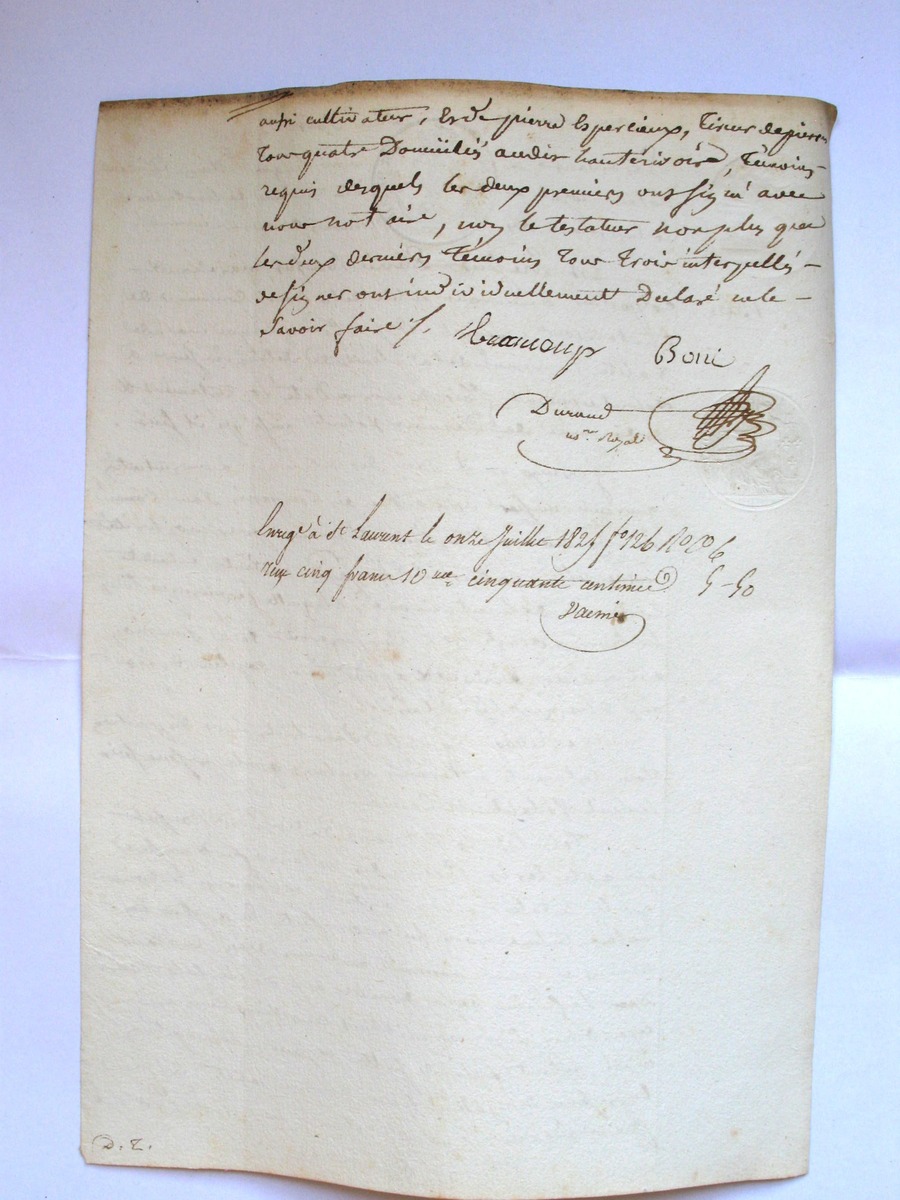 aussi cultivateur, Et de pierre Esperieux, Tireur de pierres
Tous quatre Domiciliés audit hauterivoire, Témoins
requis desquels les deux premiers ont signé avec
nous notaire, non le testateur non plus que
les deux derniers Témoins Tous Trois interpellés
de signer ont individuellement Declaré ne le
Savoir faire /.
Beaucoup Boni
Durand
nre Royal
Enregé à St Laurent le onze Juillet fo 126
reçu cinq francs 10me cinquante centimes 5-50
D. T.